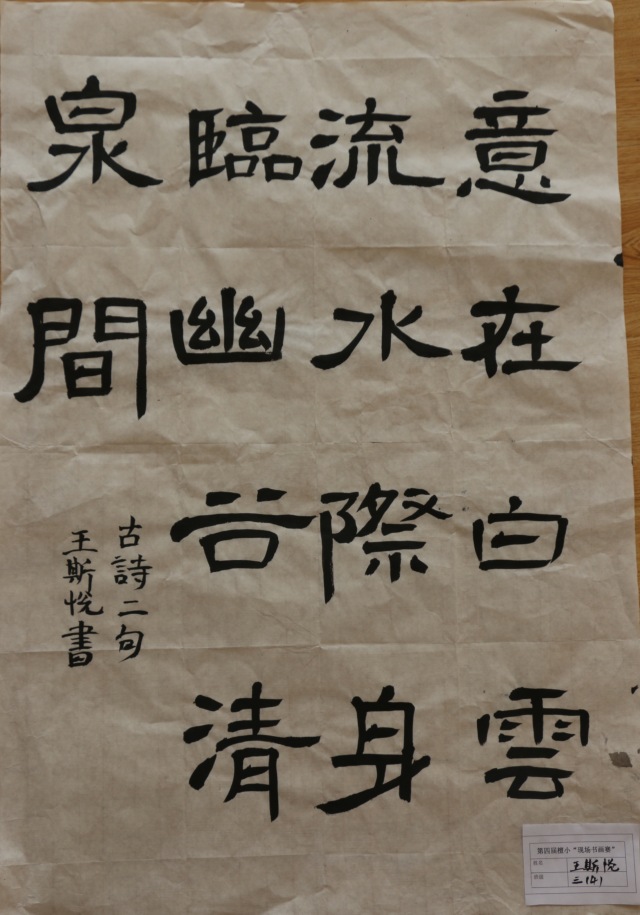 意在白雲
流水際身
臨幽谷清
泉間
古詩二句
王斯悅書
第四届樱小“现场书画赛”
姓名 王斯悦
班级 三(4)